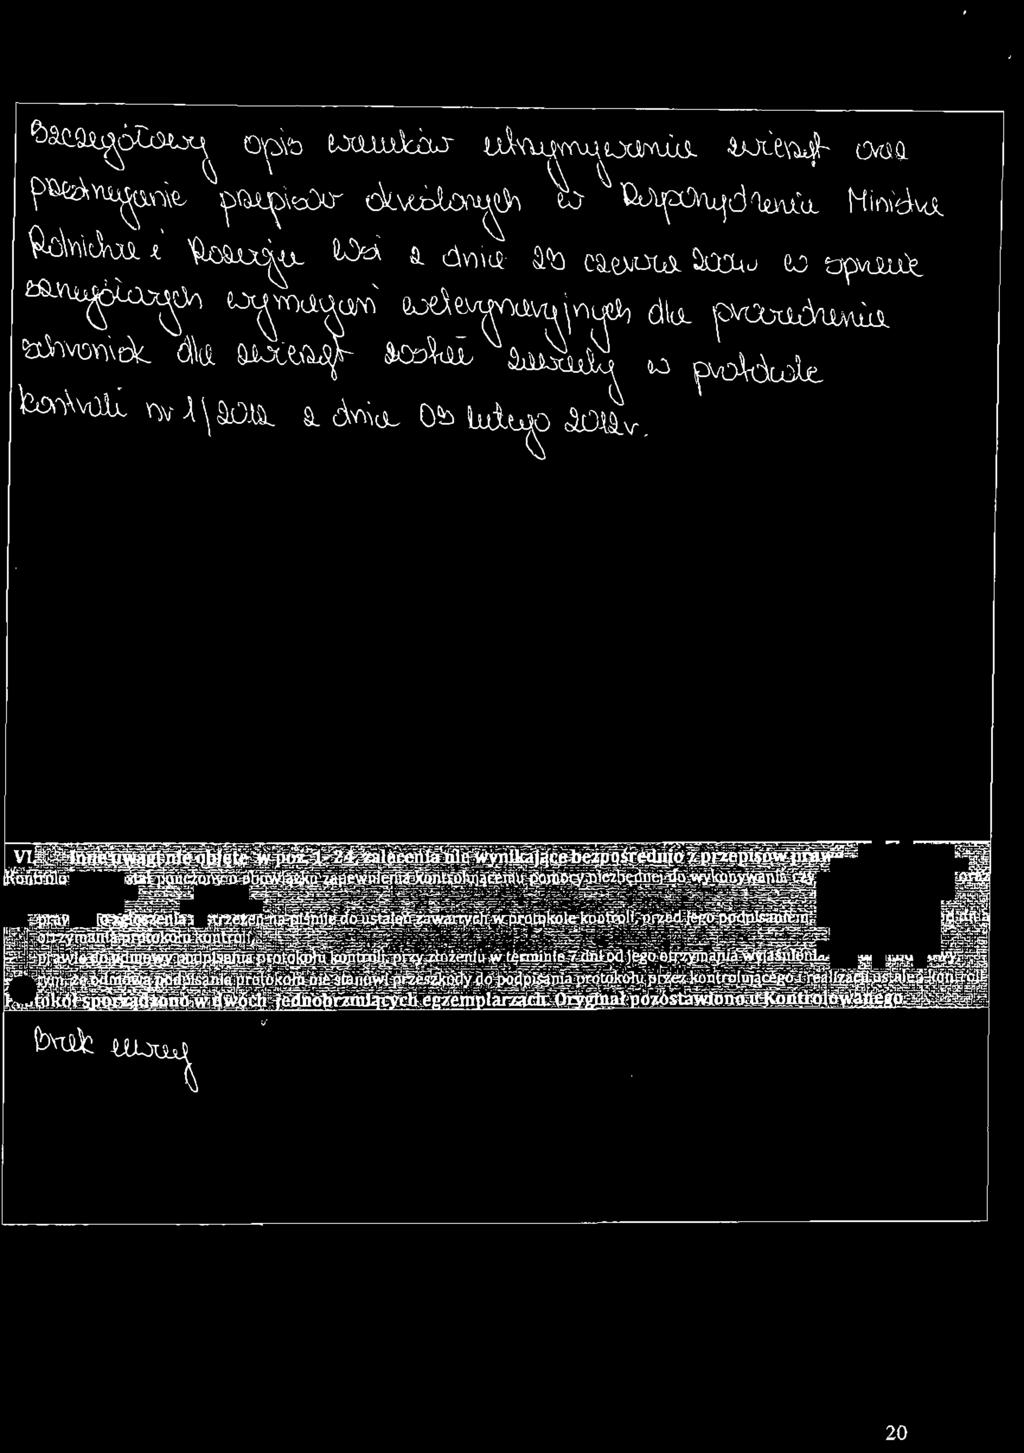 Szczegółowy opis warunków utrzymywania zwierząt oraz
przestrzeganie przepisów określonych w Rozporządzeniu Ministra
Rolnictwa i Rozwoju Wsi z dnia 23 czerwca 2004r w sprawie
szczegółowych wymagań weterynaryjnych dla prowadzenia
schronisk dla zwierząt został zawarty w protokole
kontroli nr 1/2012 z dnia 03 lutego 2012r.
VI. Inne uwagi nie objęte w poz. 1-24, zalecenia nie wynikające bezpośrednio z przepisów prawa
stał pouczony o obowiązku zapewnienia kontrolującemu pomocy niezbędnej do wykonywania oraz
zgłoszenia zastrzeżeń na piśmie do ustaleń zawartych w protokole kontroli, przed jego podpisaniem,
otrzymania protokołu kontroli,
prawie do odmowy podpisania protokołu kontroli, przy złożeniu w terminie 7 dni od jego otrzymania wyjaśnienia
tym, że odmowa podpisania protokołu nie stanowi przeszkody do podpisania protokołu przez kontrolującego i realizacji ustaleń kontroli
Protokół sporządzono w dwóch jednobrzmiących egzemplarzach. Oryginał pozostawiono u Kontrolowanego.
Brak uwag
20